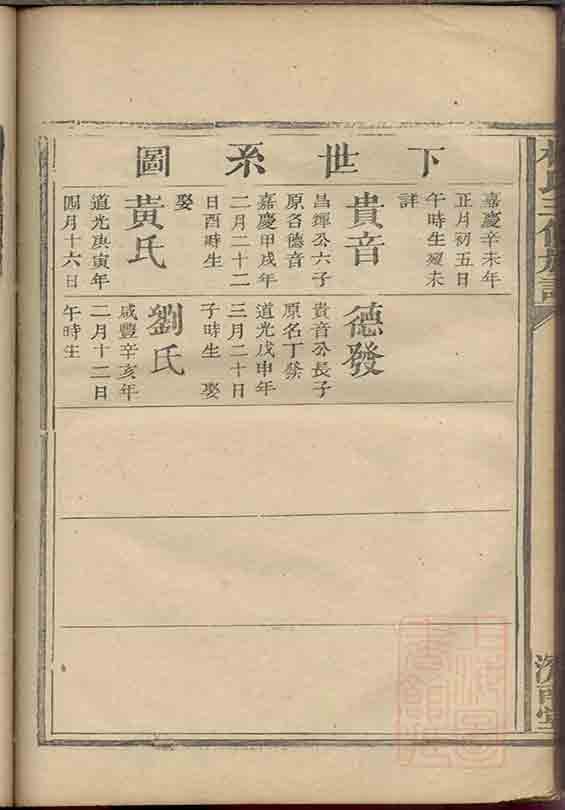 下世系圖
嘉慶辛未年
正月初五日
午時生歿未
詳
貴音
昌輝公六子
原名德音
嘉慶甲戌年
二月二十二
日酉時生
娶
黃氏
道光庚寅年
四月十六日
午時生
德發
貴音公長子
原名丁榮
道光戊申年
三月二十日
子時生 娶
劉氏
咸豐辛亥年
二月十二日